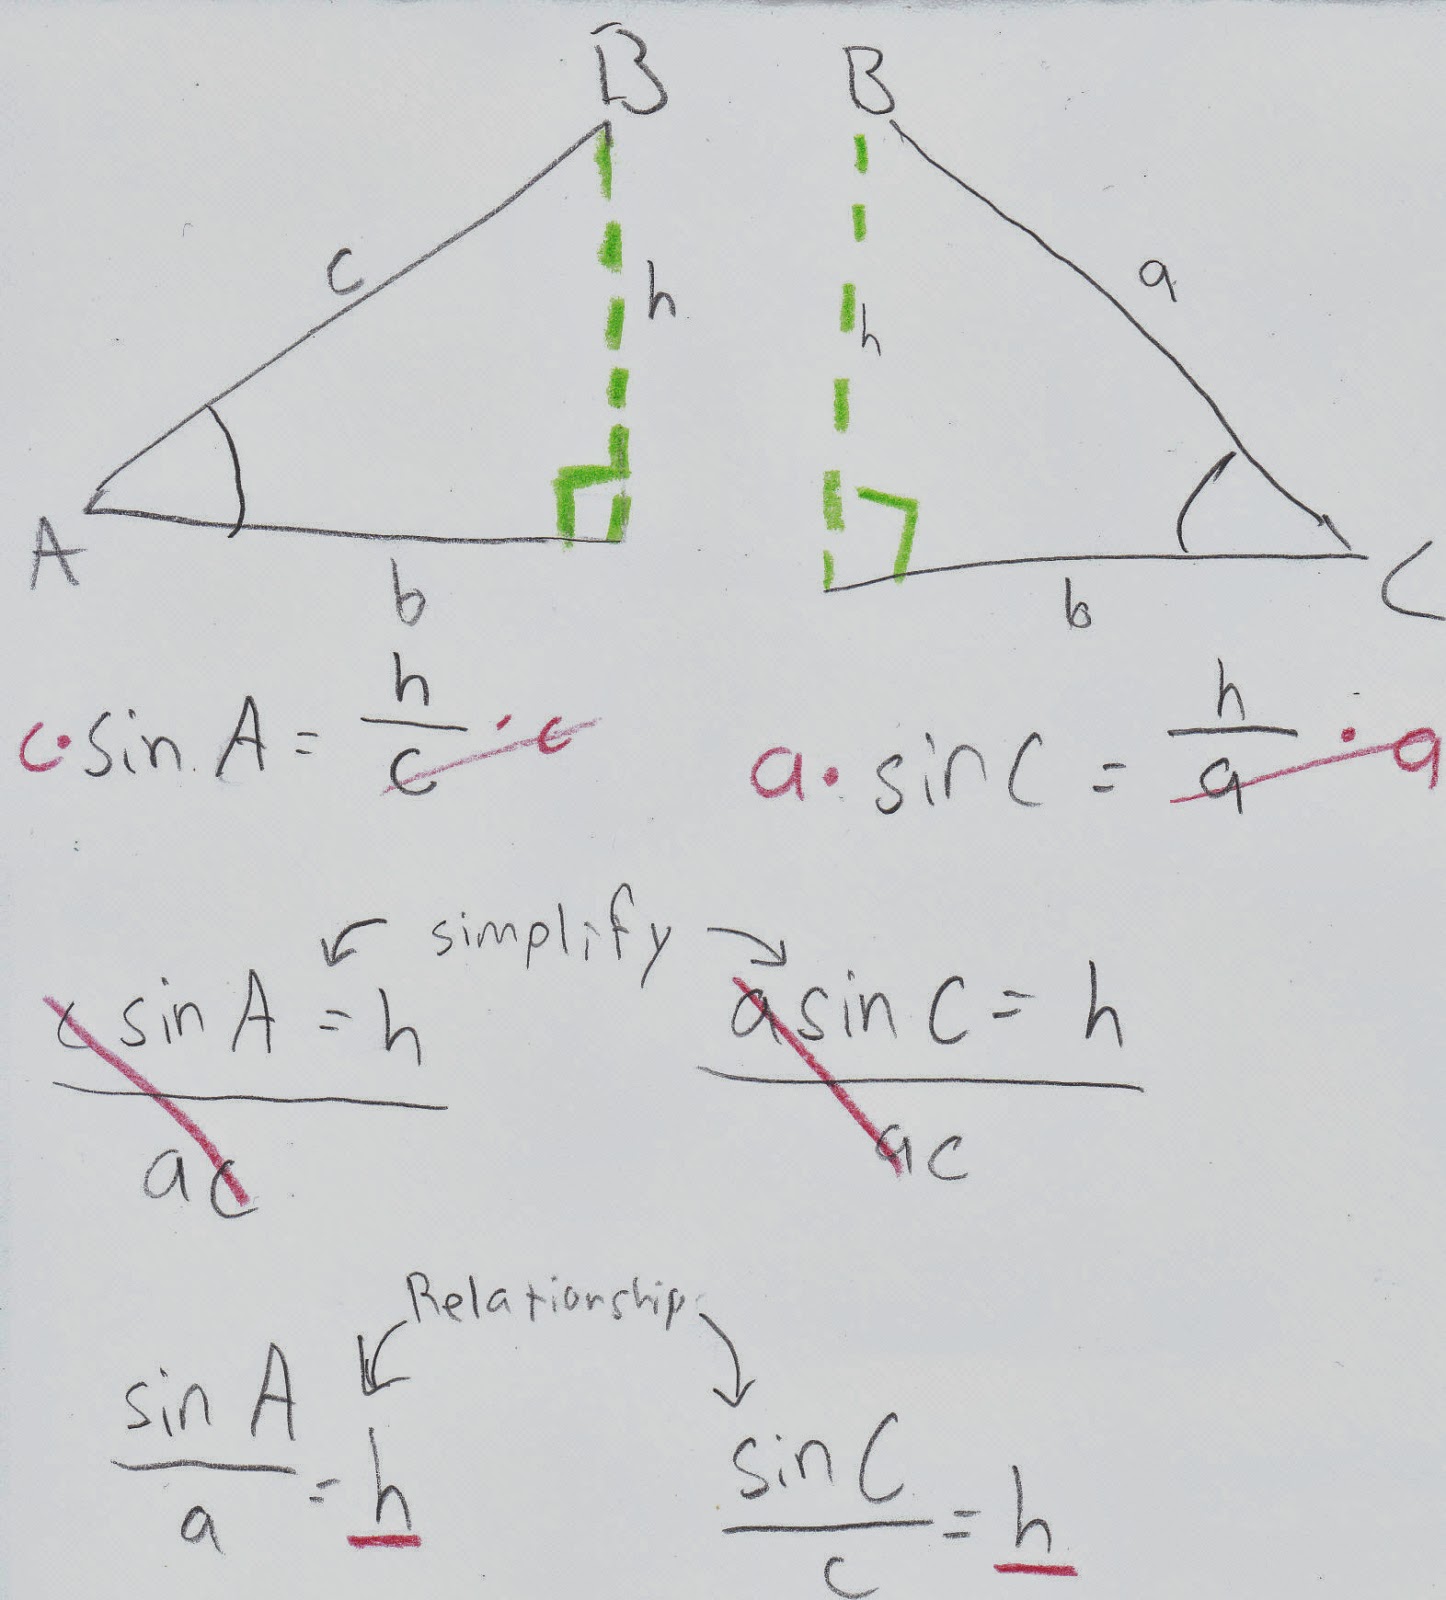 B B
c h h a
A b b C
c· sin A = h/c · c a· sin C = h/a · a
simplify
c sin A = h a sin C = h
ac ac
Relationship
sin A/a = h sin C/c = h